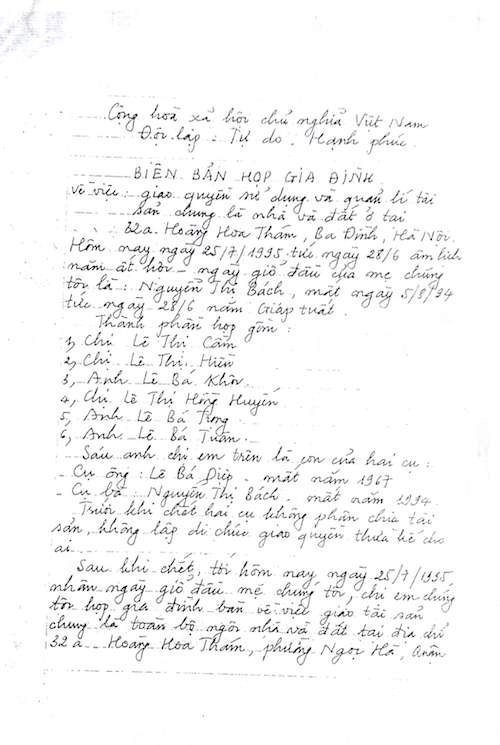 Cộng hoà xã hội chủ nghĩa Việt Nam
Độc lập - Tự do - Hạnh phúc
BIÊN BẢN HỌP GIA ĐÌNH
Về việc: giao quyền sử dụng và quản lí tài
sản chung là nhà và đất ở tại
32a Hoàng Hoa Thám, Ba Đình, Hà Nội.
Hôm nay ngày 25/7/1995 tức ngày 28/6 âm lịch
năm ất hợi - ngày giỗ đầu của mẹ chúng
tôi là: Nguyễn Thị Bách, mất ngày 5/8/94
tức ngày 28/6 năm Giáp tuất.
Thành phần họp gồm:
1, Chị Lê Thị Cầm
2, Chị Lê Thị Hiền
3, Anh Lê Bá Khôi
4, Chị Lê Thị Hồng Huyến
5, Anh Lê Bá Trọng
6, Anh Lê Bá Tuân.
Sáu anh chị em trên là con của hai cụ:
- Cụ ông: Lê Bá Diệp - mất năm 1967
- Cụ bà: Nguyễn Thị Bách - mất năm 1994.
Trước khi chết hai cụ không phân chia tài
sản, không lập di chúc giao quyền thừa kế cho
ai.
Sau khi chết, tới hôm nay ngày 25/7/1995
nhân ngày giỗ đầu mẹ chúng tôi, chị em chúng
tôi họp gia đình bàn về việc giao tài sản
chung là toàn bộ ngôi nhà và đất tại địa chỉ
32a Hoàng Hoa Thám, phường Ngọc Hà, quận